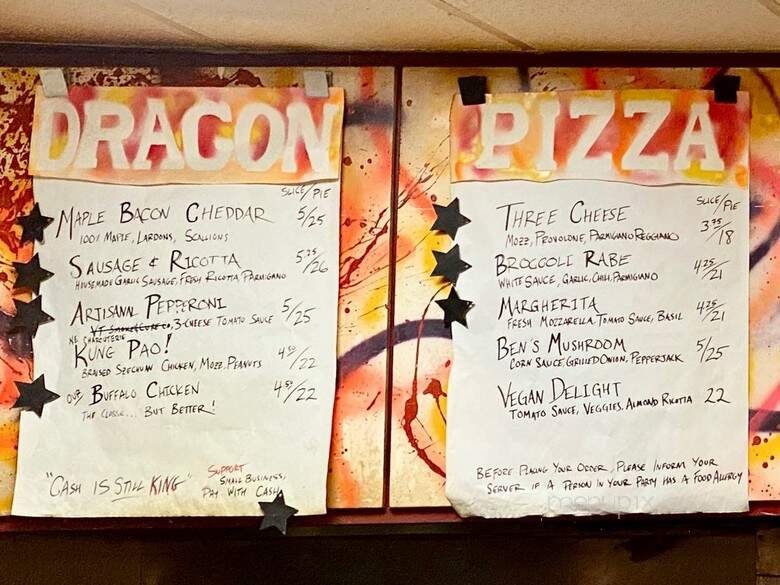 DRAGON
SLICE/PIE
MAPLE BACON CHEDDAR 5/25
100% MAPLE, LARDONS, SCALLIONS
SAUSAGE & RICOTTA 5.25/26
HOUSEMADE GARLIC SAUSAGE, FRESH RICOTTA, PARMIGIANO
ARTISANAL PEPPERONI 5/25
VT SMOKE & CURE CO, 3-CHEESE TOMATO SAUCE
NE CHARCUTERIE
KUNG PAO! 4.50/22
BRAISED SZECHUAN CHICKEN, MOZZ, PEANUTS
OUR BUFFALO CHICKEN 4.50/22
THE CLASSIC... BUT BETTER!
"CASH IS STILL KING"
SUPPORT
SMALL BUSINESS,
PAY WITH CASH
PIZZA
SLICE/PIE
THREE CHEESE 3.75/18
MOZZ, PROVOLONE, PARMIGIANO REGGIANO
BROCCOLI RABE 4.25/21
WHITE SAUCE, GARLIC, CHILI, PARMIGIANO
MARGHERITA 4.25/21
FRESH MOZZARELLA, TOMATO SAUCE, BASIL
BEN'S MUSHROOM 5/25
CORN SAUCE, GRILLED ONION, PEPPERJACK
VEGAN DELIGHT 22
TOMATO SAUCE, VEGGIES, ALMOND RICOTTA
BEFORE PLACING YOUR ORDER, PLEASE INFORM YOUR
SERVER IF A PERSON IN YOUR PARTY HAS A FOOD ALLERGY
menupix